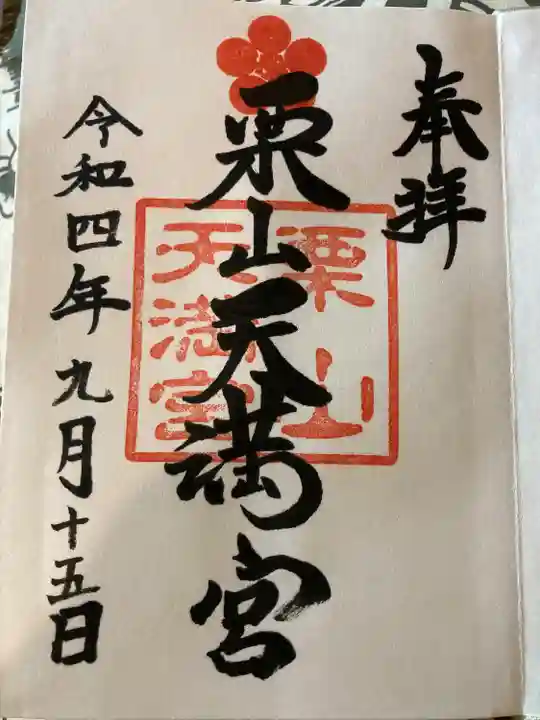 奉拝
栗山天満宮
栗山
天満宮
令和四年九月十五日